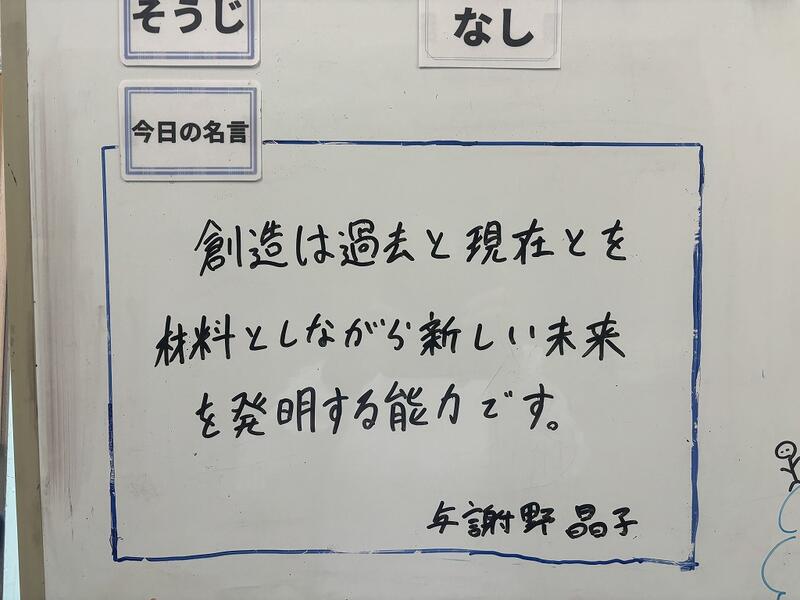 そうじ
なし
今日の名言
創造は過去と現在とを
材料としながら新しい未来
を発明する能力です。
与謝野晶子